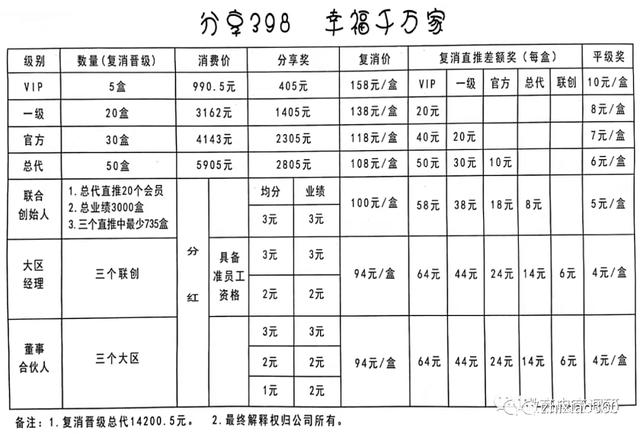 分享398 幸福千万家
级别 数量(复消晋级) 消费价 分享奖 复消价 复消直推差额奖(每盒) 平级奖
VIP 一级 官方 总代 联创
VIP 5盒 990.5元 405元 158元/盒 10元/盒
一级 20盒 3162元 1405元 138元/盒 20元 8元/盒
官方 30盒 4143元 2305元 118元/盒 40元 20元 7元/盒
总代 50盒 5905元 2805元 108元/盒 50元 30元 10元 6元/盒
联合创始人
1.总代直推20个会员
2.总业绩3000盒
3.三个直推中最少735盒
分红
具备准员工资格
均分 业绩
3元 3元
100元/盒 58元 38元 18元 8元 5元/盒
大区经理 三个联创
3元 3元
2元 2元
94元/盒 64元 44元 24元 14元 6元 4元/盒
董事合伙人 三个大区
3元 3元
2元 2元
1元 2元
94元/盒 64元 44元 24元 14元 6元 4元/盒
备注:1.复消晋级总代14200.5元。 2.最终解释权归公司所有。